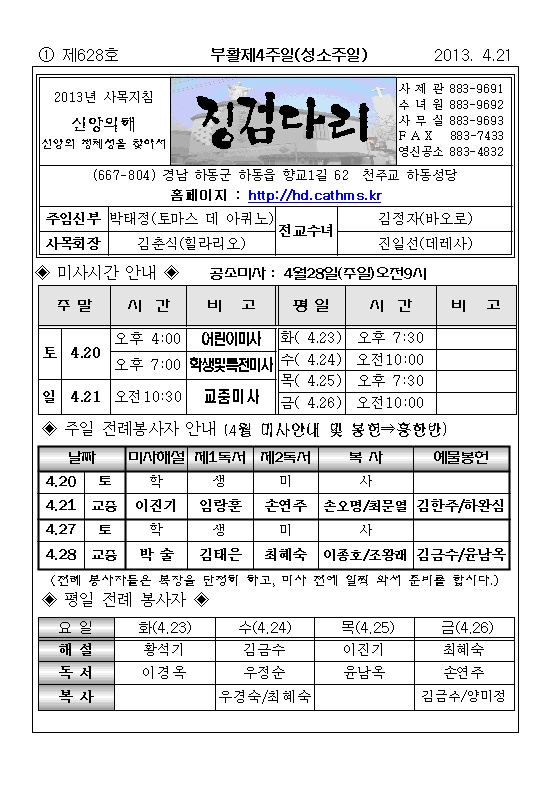 ① 제628호 부활제4주일(성소주일) 2013. 4.21
2013년 사목지침
신앙의해
신앙의 정체성을 찾아서
징검다리
사 제 관 883-9691
수 녀 원 883-9692
사 무 실 883-9693
F A X 883-7433
영신공소 883-4832
(667-804) 경남 하동군 하동읍 향교1길 62 천주교 하동성당
홈페이지 : http://hd.cathms.kr
주임신부 박태정(토마스 데 아퀴노) 전교수녀 김정자(바오로)
사목회장 김춘식(힐라리오) 진일선(데레사)
◈ 미사시간 안내 ◈ 공소미사 : 4월28일(주일)오전9시
주 말 시 간 비 고 평 일 시 간 비 고
토 4.20 오후 4:00 어린이미사 화( 4.23) 오후 7:30
오후 7:00 학생및특전미사 수( 4.24) 오전10:00
일 4.21 오전10:30 교중미사 목( 4.25) 오후 7:30
금( 4.26) 오전10:00
◈ 주일 전례봉사자 안내 (4월 미사안내 및 봉헌⇒흥한반)
날짜 미사해설 제1독서 제2독서 복 사 예물봉헌
4.20 토 학 생 미 사
4.21 교중 이진기 임랑훈 손연주 손오명/최문열 김한주/하완심
4.27 토 학 생 미 사
4.28 교중 박 술 김태은 최혜숙 이종호/조왕래 김금수/윤남옥
(전례 봉사자들은 복장을 단정히 하고, 미사 전에 일찍 와서 준비를 합시다.)
◈ 평일 전례 봉사자 ◈
요 일 화(4.23) 수(4.24) 목(4.25) 금(4.26)
해 설 황석기 김금수 이진기 최혜숙
독 서 이경옥 우정순 윤남옥 손연주
복 사 우경숙/최혜숙 김금수/양미정